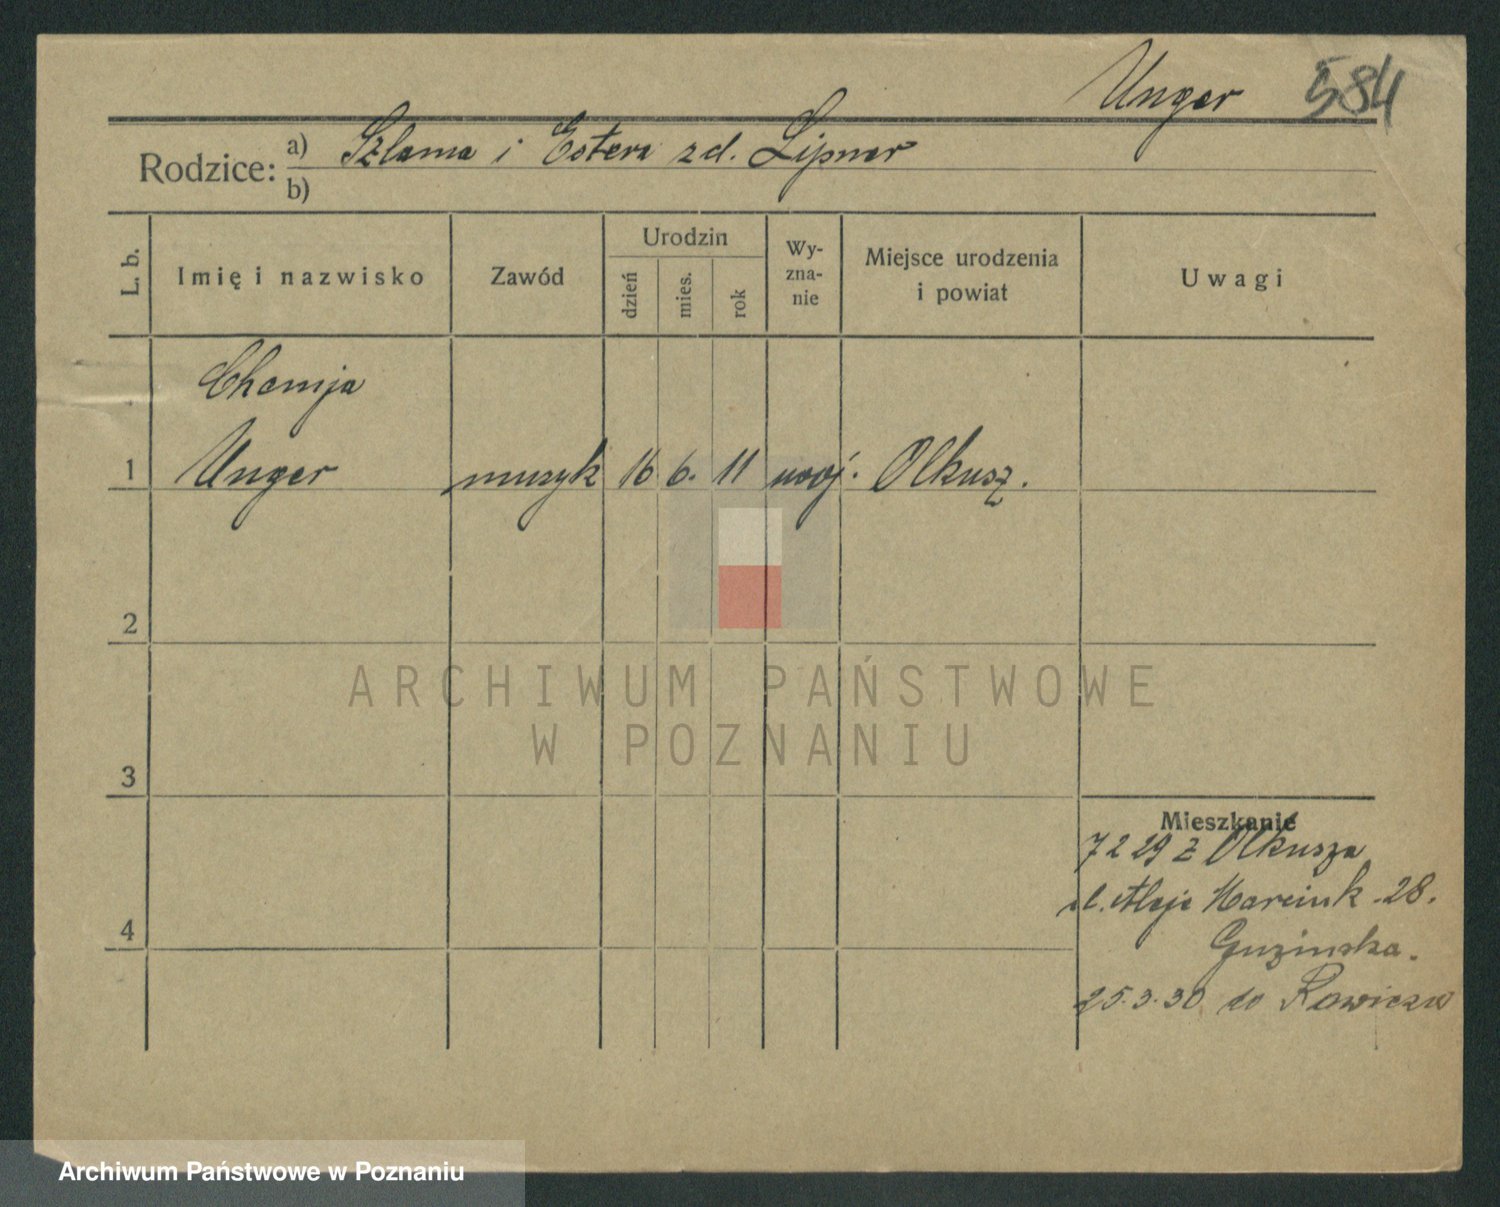 Unger 584
Rodzice: a) Szlama i Estera zd. Lipner
b)
L. b. Imię i nazwisko Zawód Urodzin dzień mies. rok Wy-zna-nie Miejsce urodzenia i powiat Uwagi
Chemja
1 Unger muzyk 16 6. 11 mojż. Olkusz.
2
ARCHIWUM PAŃSTWOWE
W POZNANIU
3
Mieszkanie
7 2 29 z Olkusza
Aleje Marcink. 28.
4
Guzinska.
25.3.30 do Rawicza
Archiwum Państwowe w Poznaniu